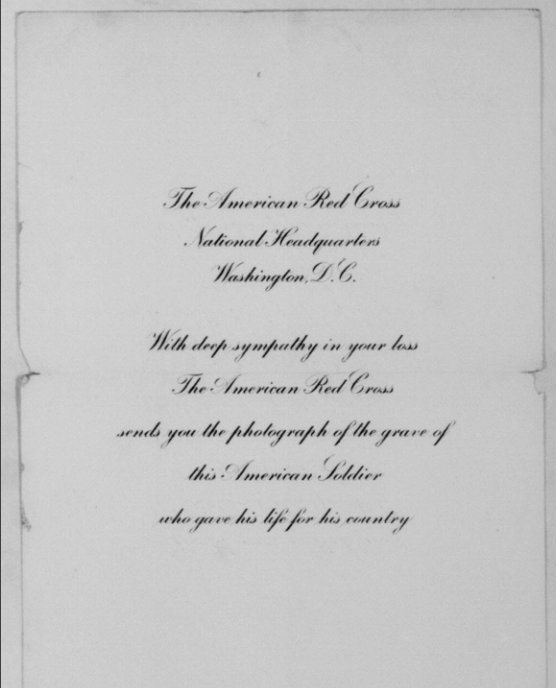 The American Red Cross
National Headquarters
Washington, D.C.
With deep sympathy in your loss
The American Red Cross
sends you the photograph of the grave of
this American Soldier
who gave his life for his country